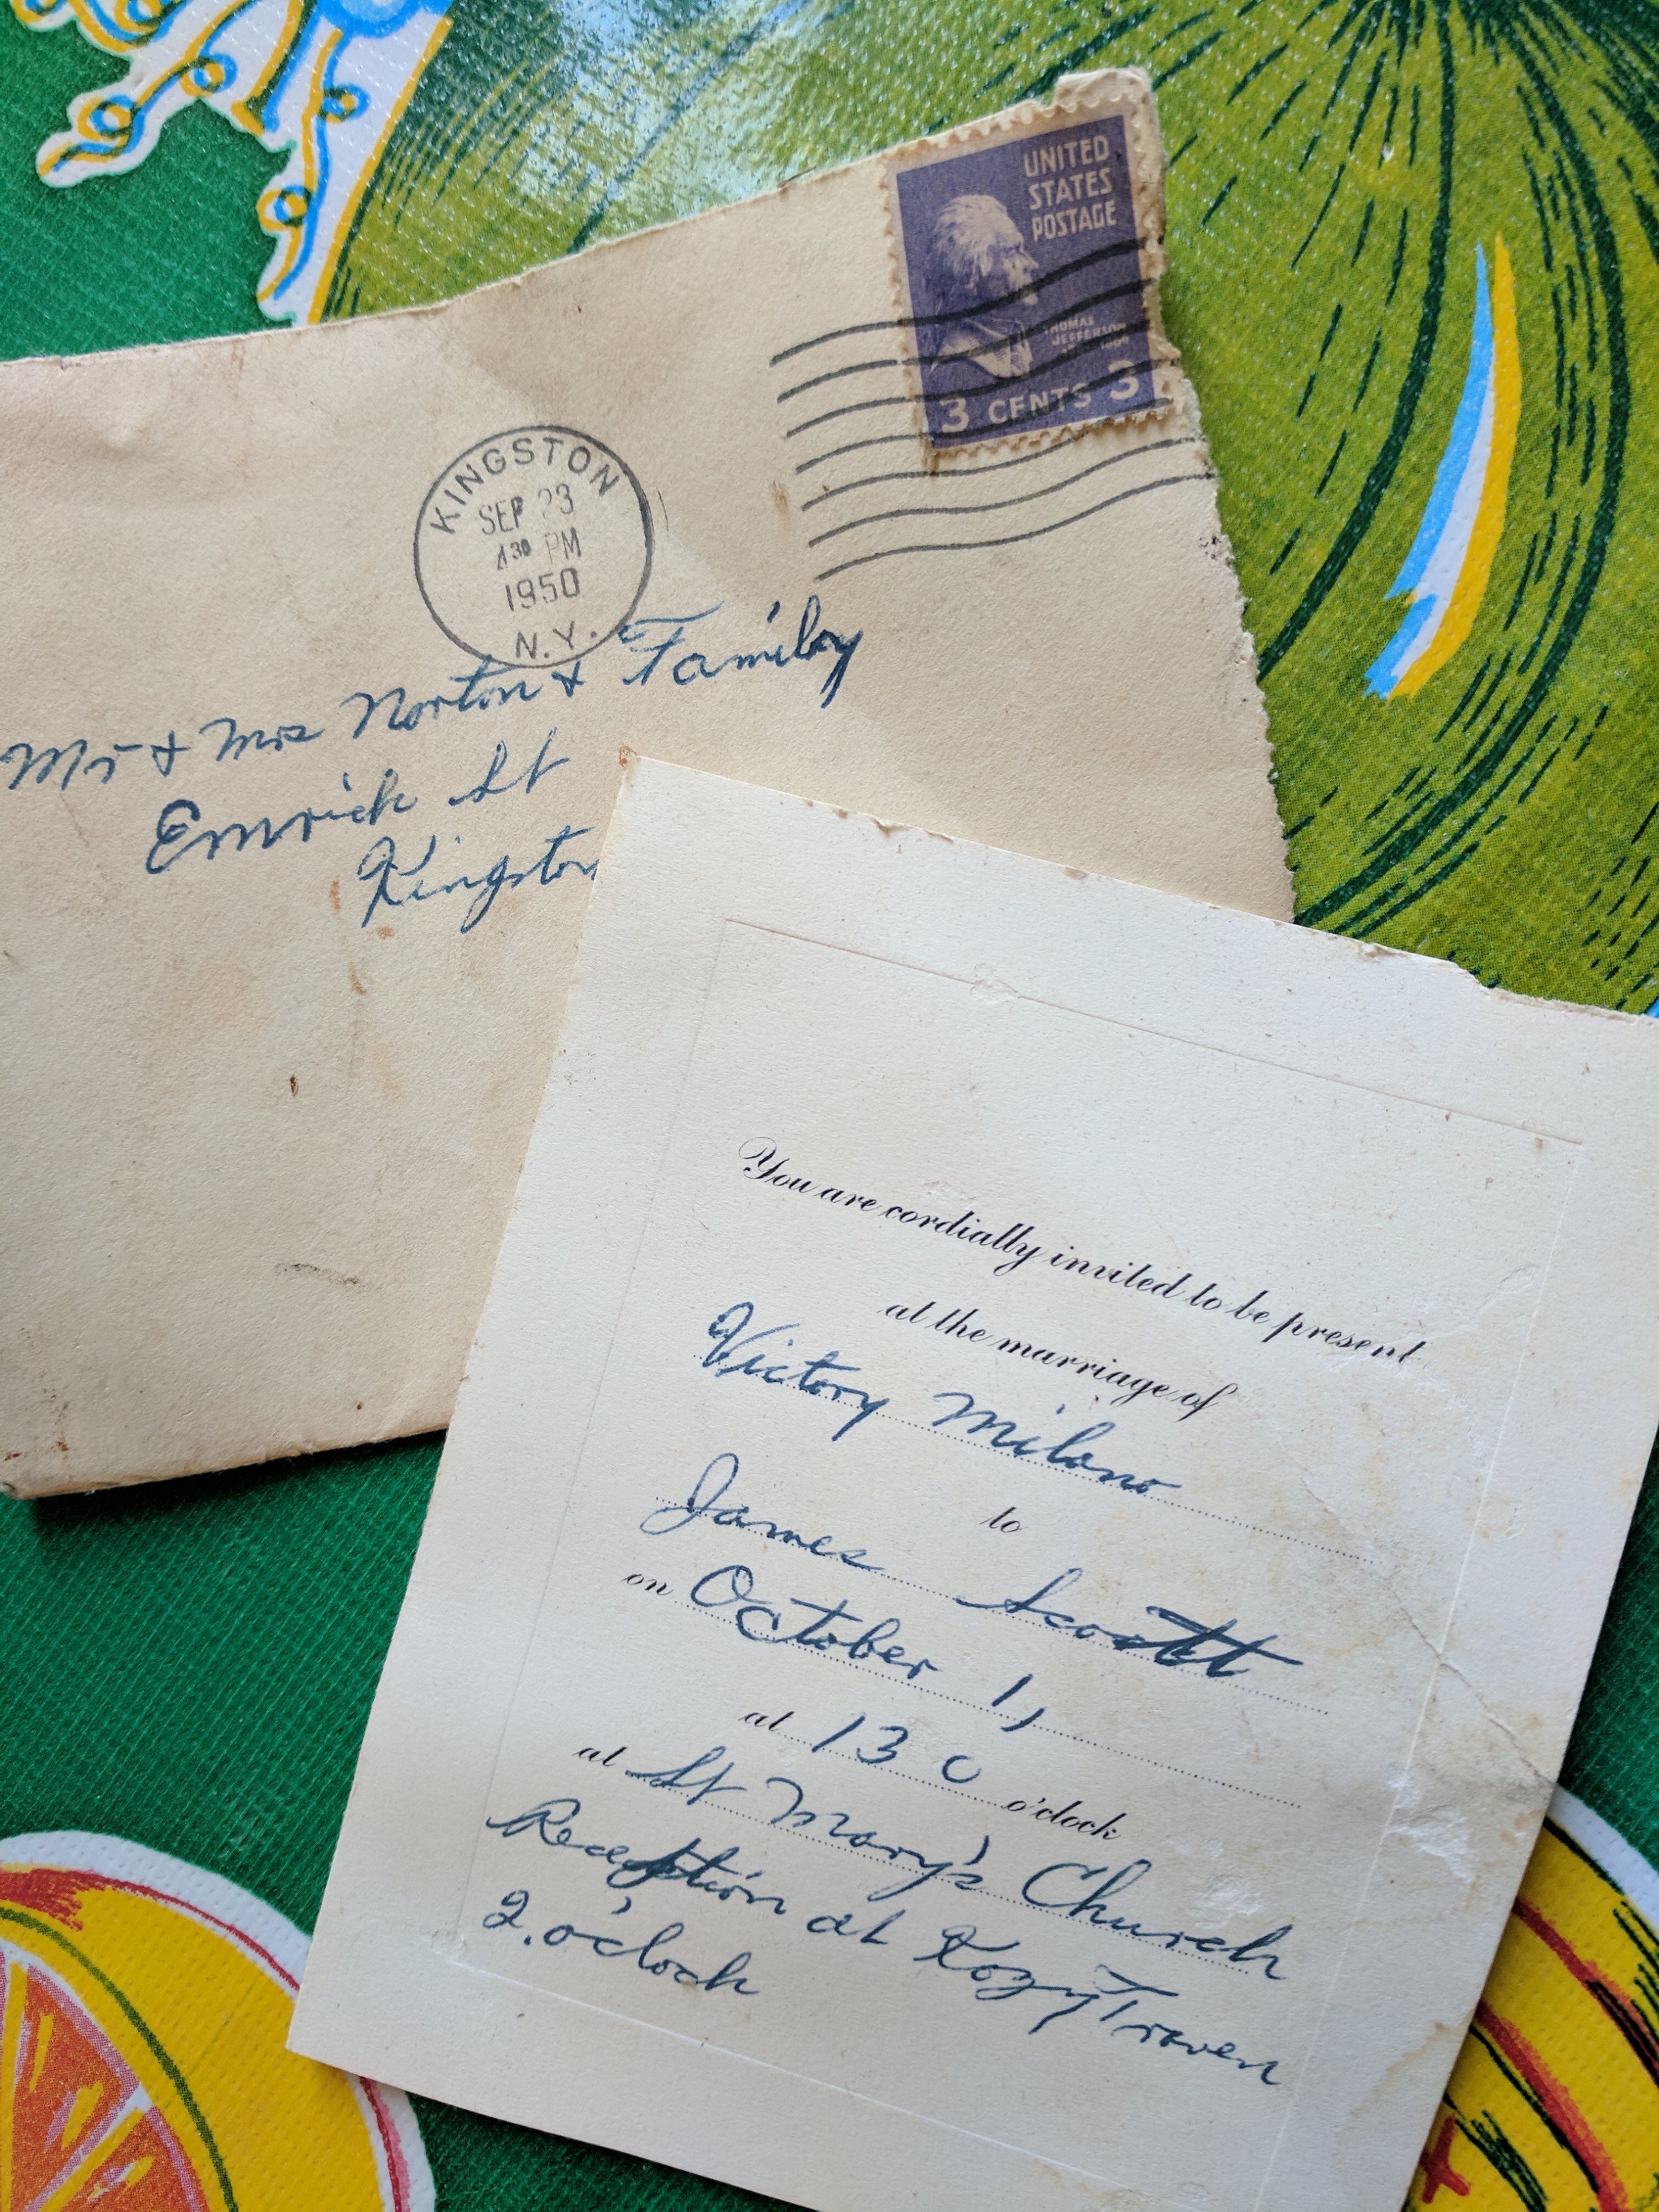 UNITED
STATES
POSTAGE
THOMAS
JEFFERSON
3 CENTS 3
KINGSTON
SEP 23
4 30 PM
1950
N.Y.
Mr & Mrs Norton & Family
Emrick St
Kingston
You are cordially invited to be present
at the marriage of
Victory Milano
to
James Scott
on October 1,
at 130 o'clock
at St Mary's Church
Reception at Kozy Traven
2.o'clock